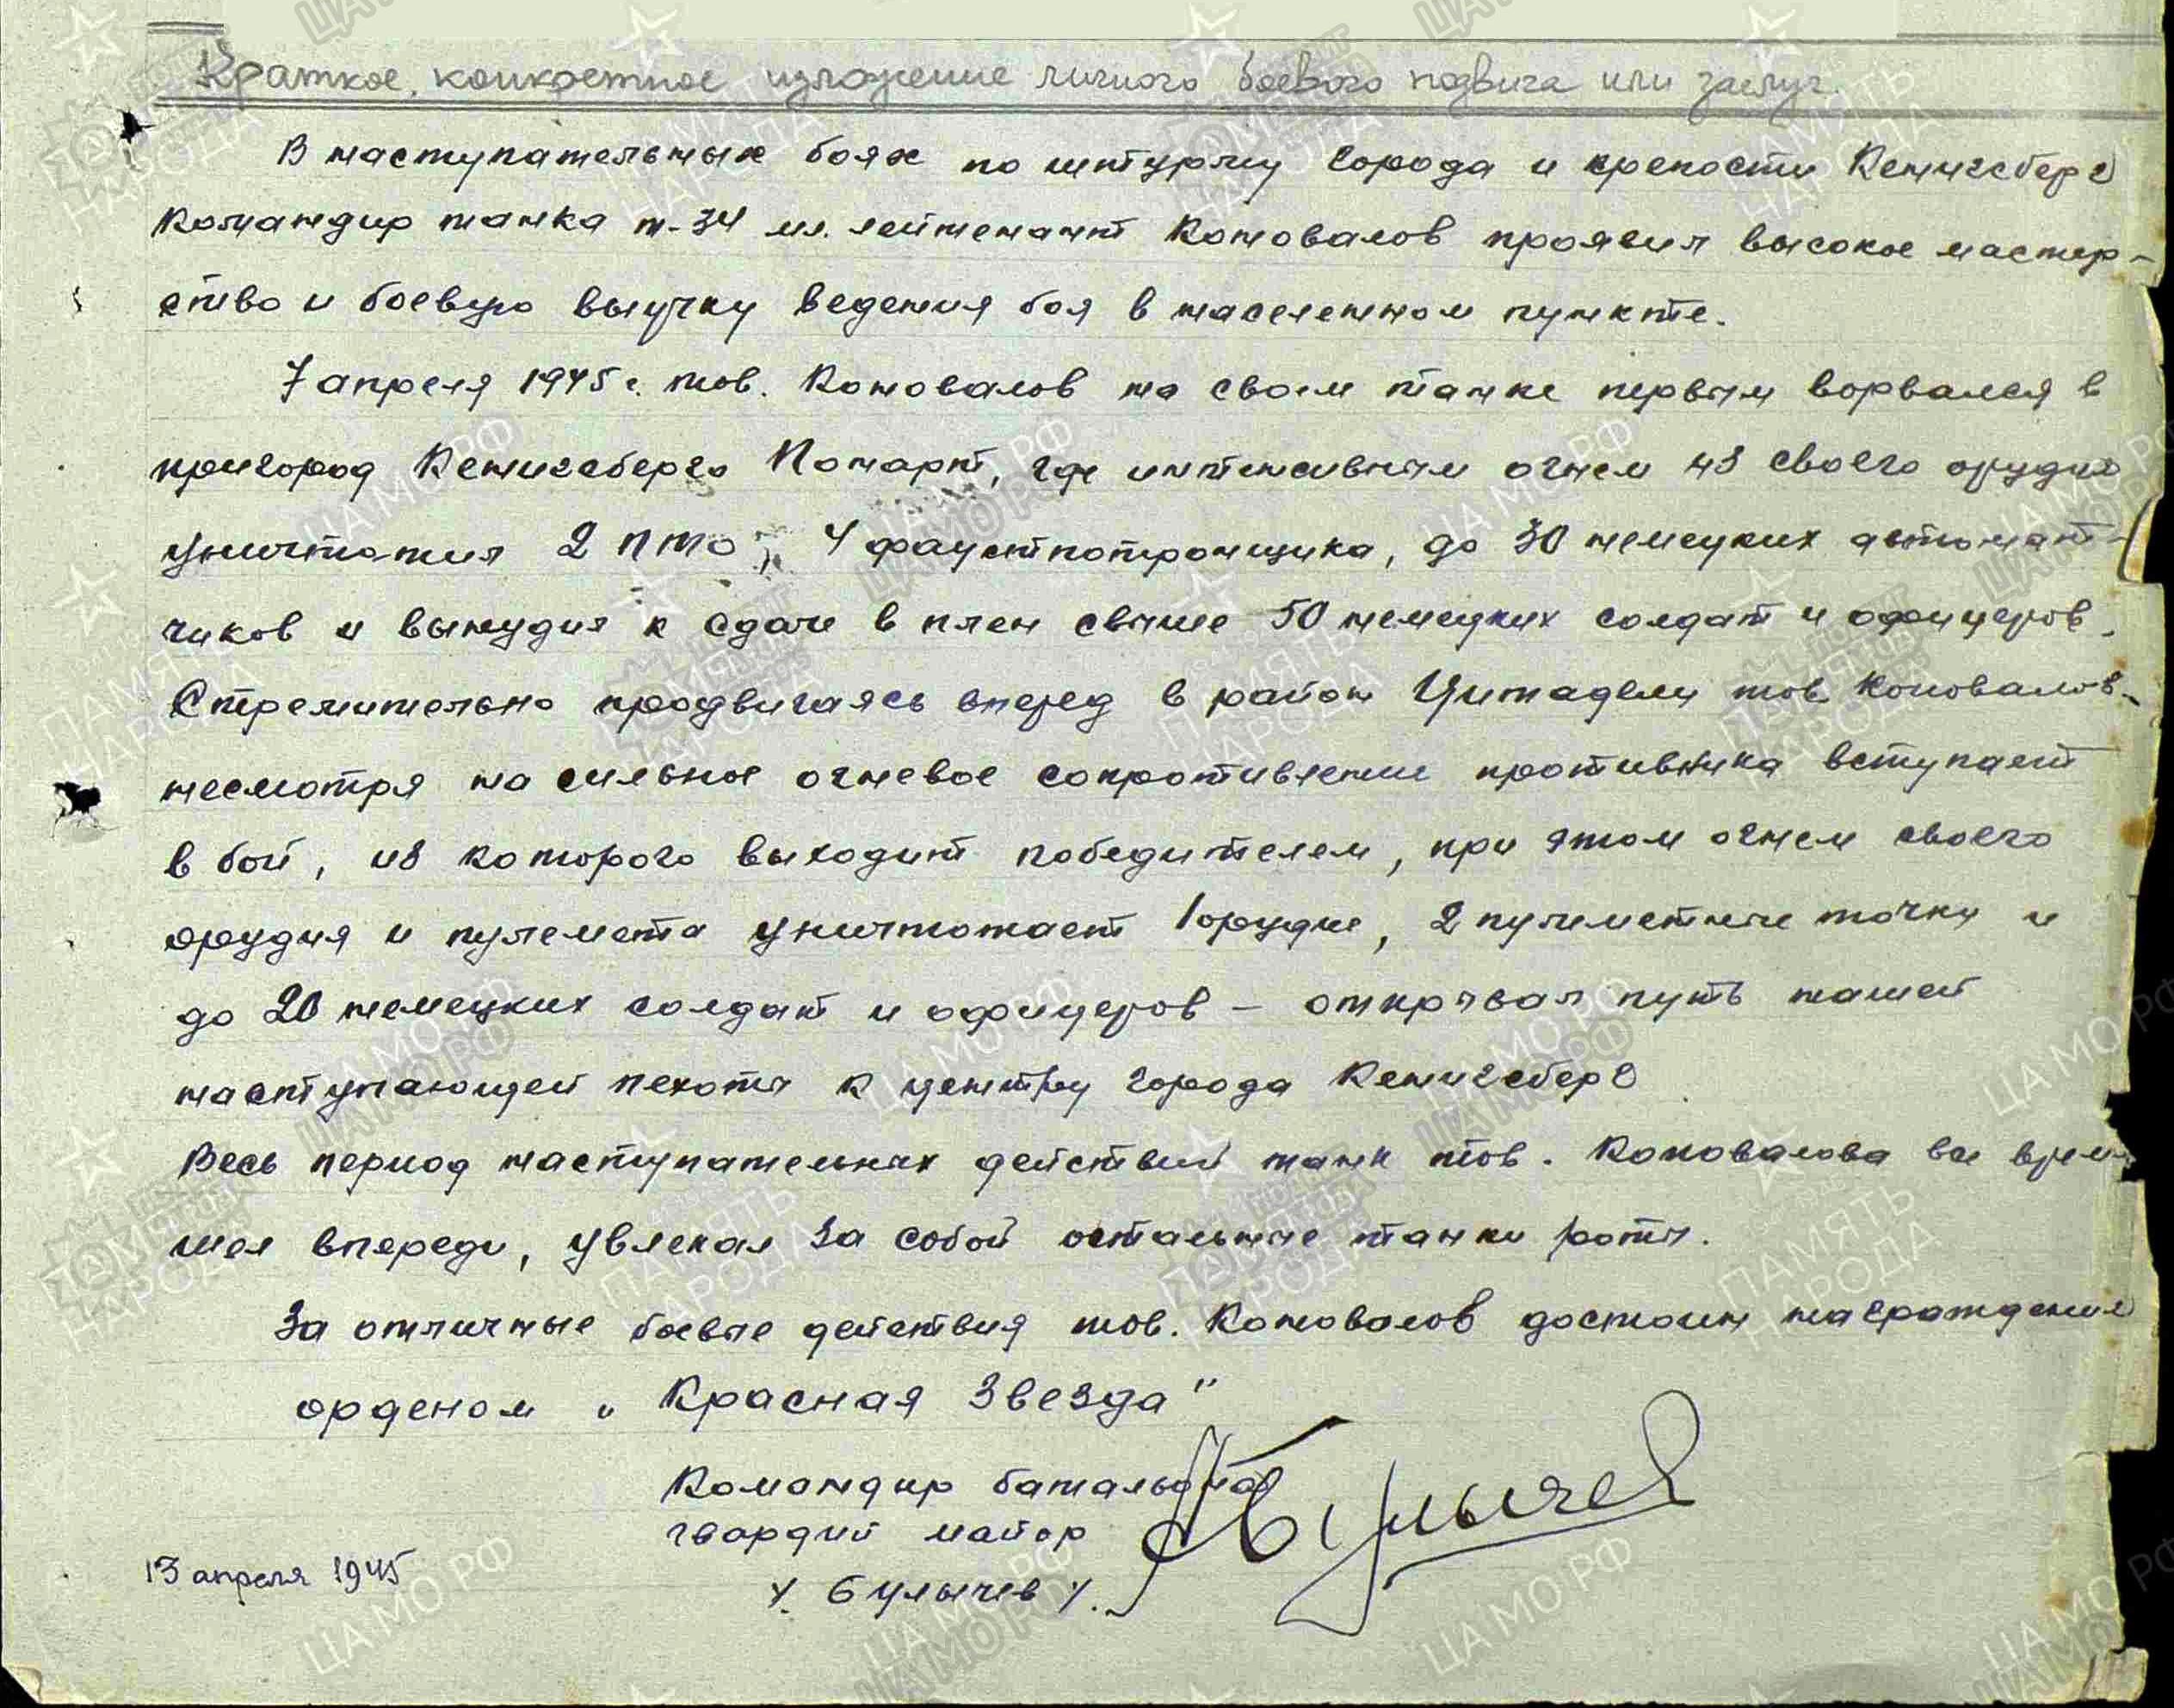 Краткое, конкретное изложение личного боевого подвига или заслуг.
В наступательных боях по штурму города и крепости Кенигсберг
командир танка т-34 мл. лейтенант Коновалов проявил высокое мастер-
ство и боевую выучку ведения боя в населенном пункте.
7 апреля 1945 г. тов. Коновалов на своем танке первым ворвался в
пригород Кенигсберга Понарт, где интенсивным огнем из своего орудия
уничтожил 2 ПТО, 4 фаустпатронщика, до 30 немецких автомат-
чиков и вынудил к сдаче в плен свыше 50 немецких солдат и офицеров.
Стремительно продвигаясь вперед в район Цитадели тов Коновалов-
несмотря на сильное огневое сопротивление противника вступает
в бой, из которого выходит победителем, при этом огнем своего
орудия и пулемета уничтожает 1 орудие, 2 пулеметные точки и
до 20 немецких солдат и офицеров - открывая путь нашей
наступающей пехоты к центру города Кенигсберг
Весь период наступательных действий танк тов. Коновалова все время
шел впереди, увлекая за собой остальные танки роты.
За отличные боевые действия тов. Коновалов достоин награждения
орденом „Красная Звезда"
Командир батальона
гвардий майор
/. Булычев /.
13 апреля 1945
ЦАМО РФ
ПАМЯТЬ НАРОДА